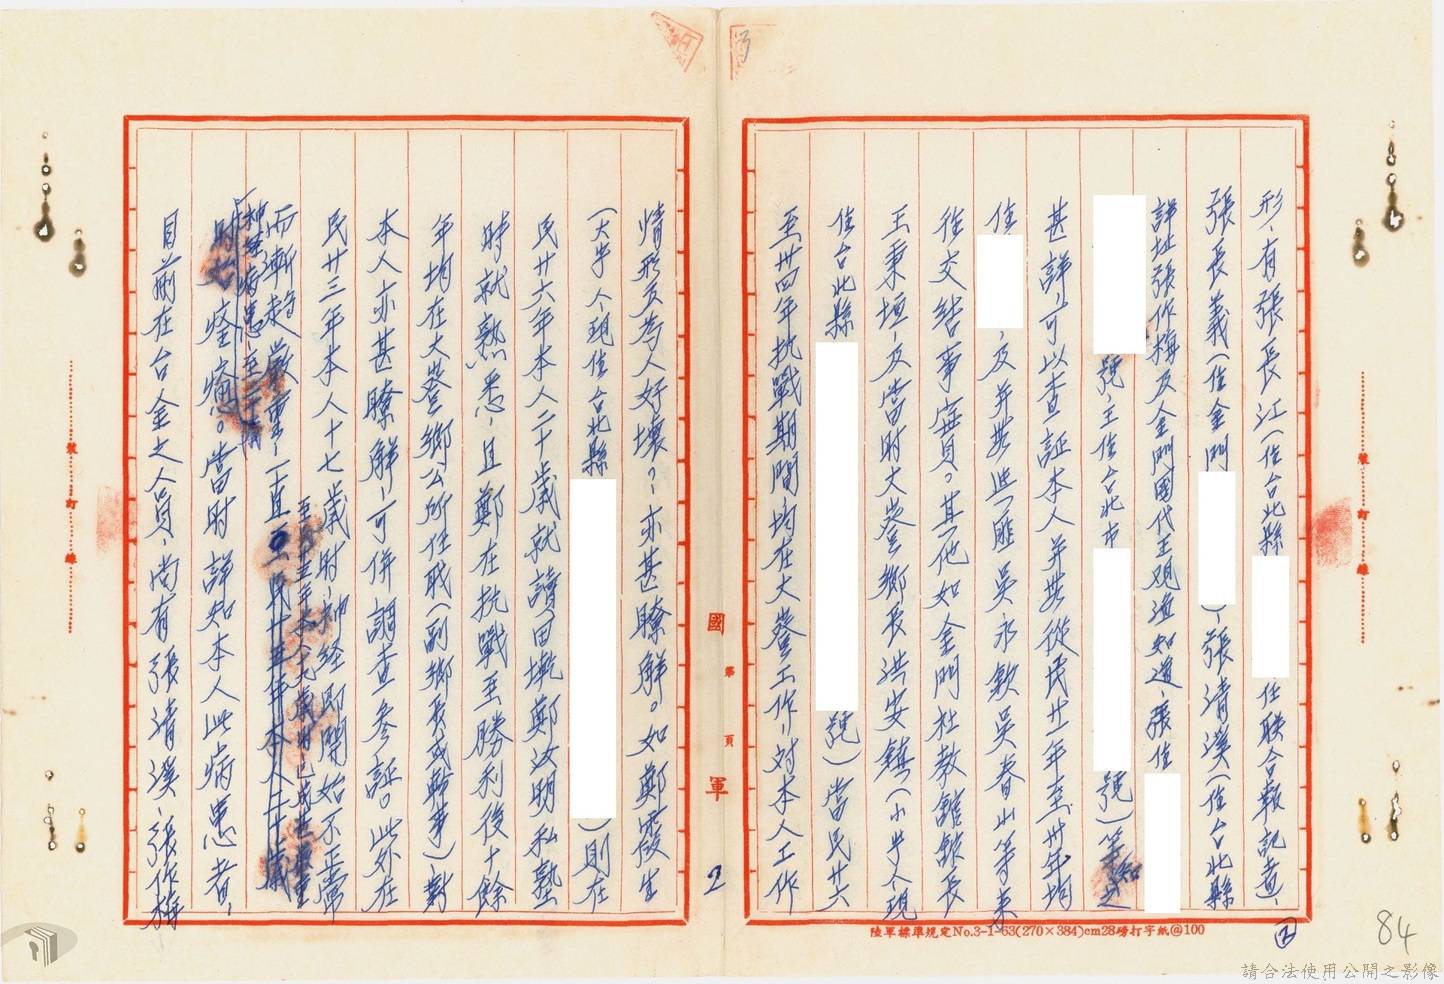 形，有張長江（住台北縣 任聯合報記者，
張長義（住金門 ），張清漢（住台北縣
詳址張作梅及金門國代王觀漁知道，張住
號，王住台北市 號）等知之
甚詳，可以查証本人并無從民廿一年至卅年均
住 ，及并無與匪吳永欽吳春山等來
往交結事實。其他如金門社教館館長
王秉垣，及當時大嶝鄉長洪安鎮（小步人，現
住台北縣 號）當民廿六
至卅四年抗戰期間均在大嶝工作，對本人工作
情形及為人好壞？，亦甚瞭解。如鄭霞生
（大步人現住台北縣 ）則在
民廿六年本人二十歲就讀田墘鄭汝明私塾
時就熟悉，且鄭在抗戰至勝利後十餘
年均在大嶝鄉公所任職（副鄉長或幹事）對
本人亦甚瞭解，可併調查參証。此外在
民廿三年本人十七歲時，神経即開始不正常
而漸趨嚴重，一直至民廿 年本人二十 歲
神経病患
時始痊癒。當時詳知本人此病患者，
目前在台金之人員，尚有張清漢，張作梅
國 軍
第 頁
2
裝 訂 線
裝 訂 線
陸軍標準規定No.3-1-63(270×384)cm28磅打字紙@100
②
84
請合法使用公開之影像